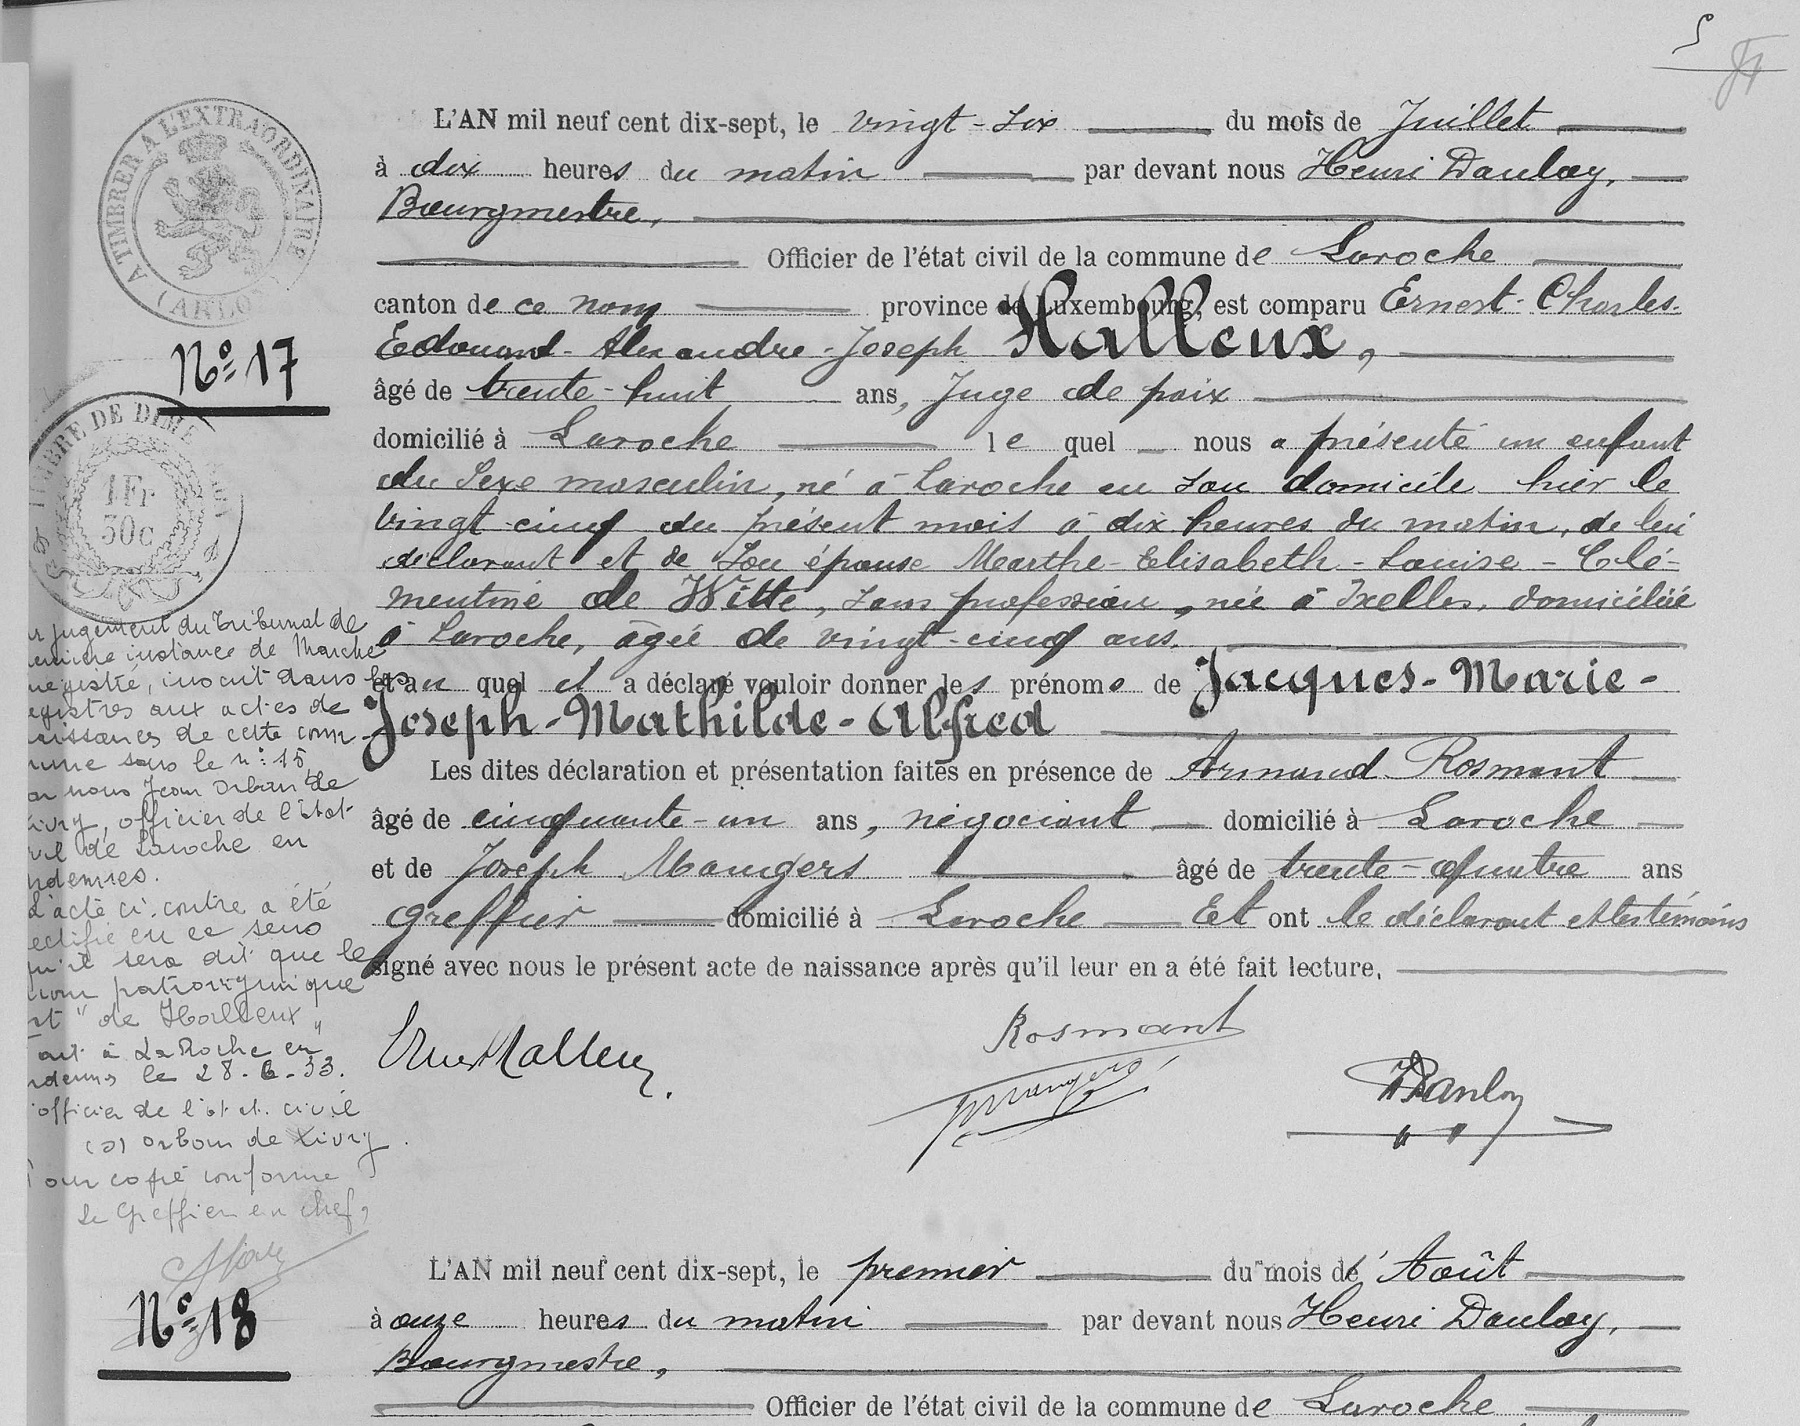 5
A TIMBRER A L'EXTRAORDINAIRE
(ARLON)
L'AN mil neuf cent dix-sept, le vingt-six du mois de Juillet
à dix heures du matin par devant nous Henri Danloy,
Bourgmestre,
Officier de l'état civil de la commune de Laroche
canton de ce nom province de Luxembourg, est comparu Ernest-Charles-
Edouard-Alexandre-Joseph Halleux,
Nº 17
âgé de trente-huit ans, Juge de paix
TIMBRE DE DIME
1 Fr
30c
domicilié à Laroche lequel nous a présenté un enfant
du sexe masculin, né à Laroche en son domicile hier le
vingt-cinq du présent mois à dix heures du matin, de lui
déclarant et de son épouse Marthe-Elisabeth-Louise-Clé-
mentine de Witte, sans profession, née à Ixelles, domiciliée
à Laroche, âgée de vingt-cinq ans.
et au quel il a déclaré vouloir donner les prénoms de Jacques-Marie-
Joseph-Mathilde-Alfred
Les dites déclaration et présentation faites en présence de Armand Rosmant
âgé de cinquante-un ans, négociant domicilié à Laroche
et de Joseph Maugers âgé de trente-quatre ans
greffier domicilié à Laroche Et ont le déclarant et les témoins
signé avec nous le présent acte de naissance après qu'il leur en a été fait lecture.
Ernest Halleux.
Rosmant
Maugers
HDanloy
jugement du Tribunal de
instance de Marche
inscrit dans les
registres aux actes de
naissances de cette com-
mune sous le nº 15
nous Jean Orban de
Xivry, officier de l'état
de Laroche en
L'acte ci-contre a été
rectifié en ce sens
qu'il sera dit que le
nom patronymique
"de Halleux"
à La Roche en
le 28-6-33.
officier de l'état civil
(s) Orban de Xivry
Pour copie conforme
Le Greffier en chef,
Nº 18
L'AN mil neuf cent dix-sept, le premier du mois de Août
à onze heures du matin par devant nous Henri Danloy,
Bourgmestre,
Officier de l'état civil de la commune de Laroche